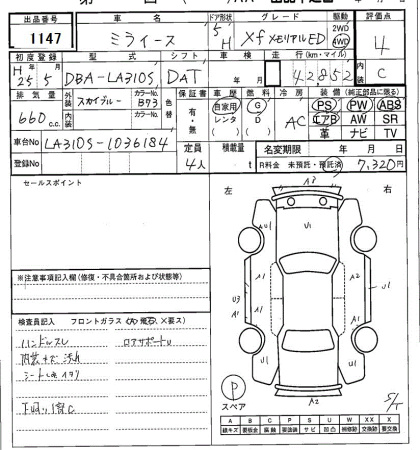 出品番号 車名 ドア形状 グレード 駆動 評価点
1147 ミライース 5 H Xf メモリアルED 2WD 4WD 4
初度登録 型式 シフト 車検 走行(km・マイル) 内装
H25 5 DBA-LA310S DAT 年 月 42,952 C
排気量 外装 カラーNo. 色替 保証書 車歴 燃料 冷房 装備(純正部品に限る)
660 c.c. スカイブルー B73 有・無 自家用 レンタ G D AC PS PW ABS
内装 カラーNo. エアB AW SR
革 ナビ TV
車台No LA310S-1036184 定員 積載量 名変期限 年 月 日
登録No 4人 t R料金 未預託・預託済 7,320円
セールスポイント
左 右
A3
U1 U1 U1
A1 A2
U3 A1 A1 U1
※注意事項記入欄(修復・不具合箇所および状態等)
検査員記入 フロントガラス(A 飛石 X要ス)
ハンドルスレ ロアサポートU
内装キズ 汚れ
シート
C
P
スペア
A2
S/T
A B C P S U W XX X
線キズ 要板金 腐蝕 要塗装 サビ 凹凸 補修跡 交換跡 要交換